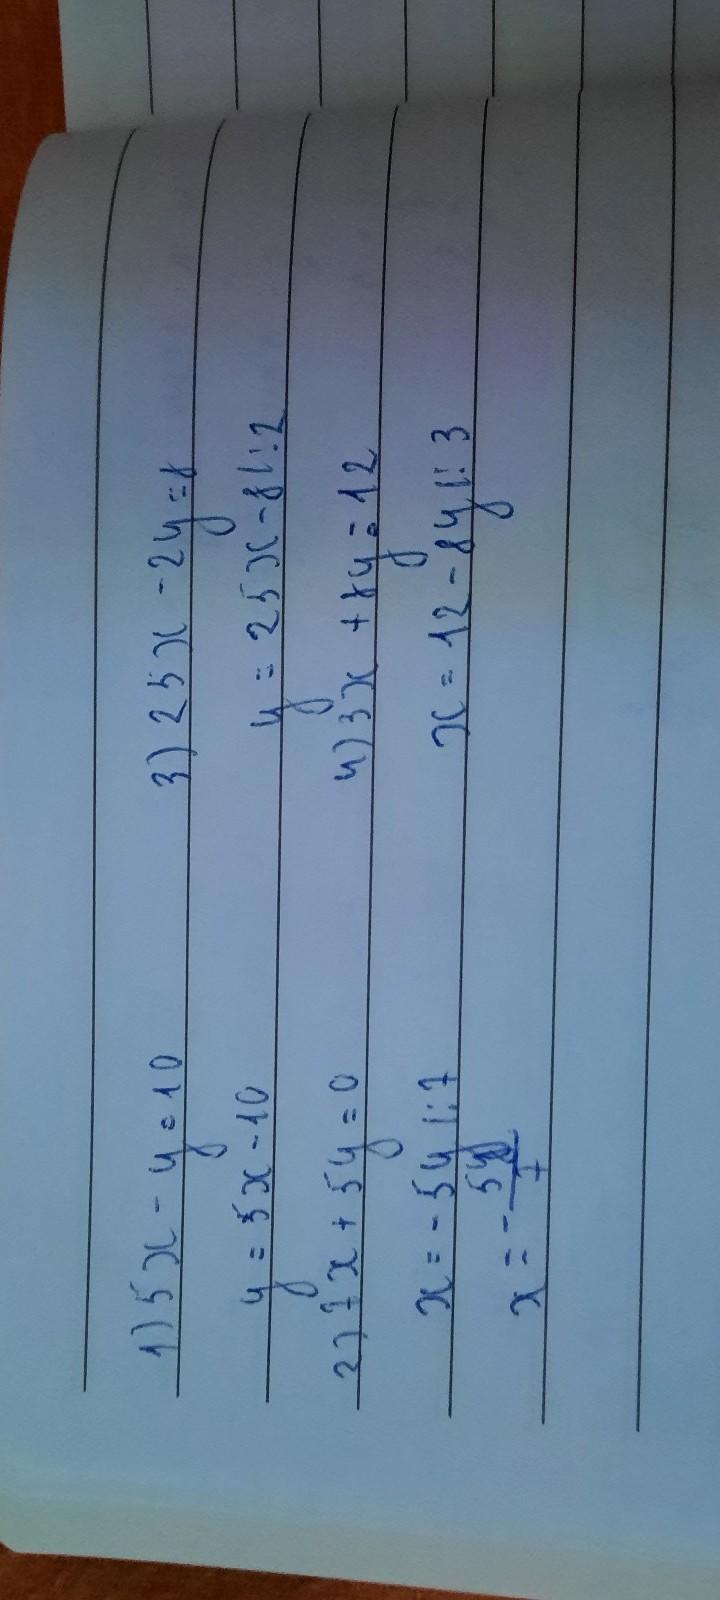 1) 5x - y = 10
y = 5x - 10
2) 7x + 5y = 0
x = - 5y |: 7
x = - 5y/7
3) 25x - 2y = 8
y = 25x - 8 |: 2
4) 3x + 8y = 12
x = 12 - 8y |: 3